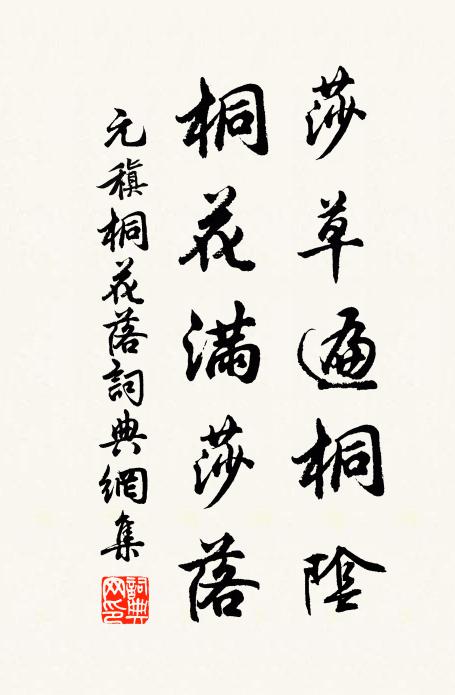 莎草遍桐陰
桐花滿莎落
元稹桐花落詞典網集
詞典網印